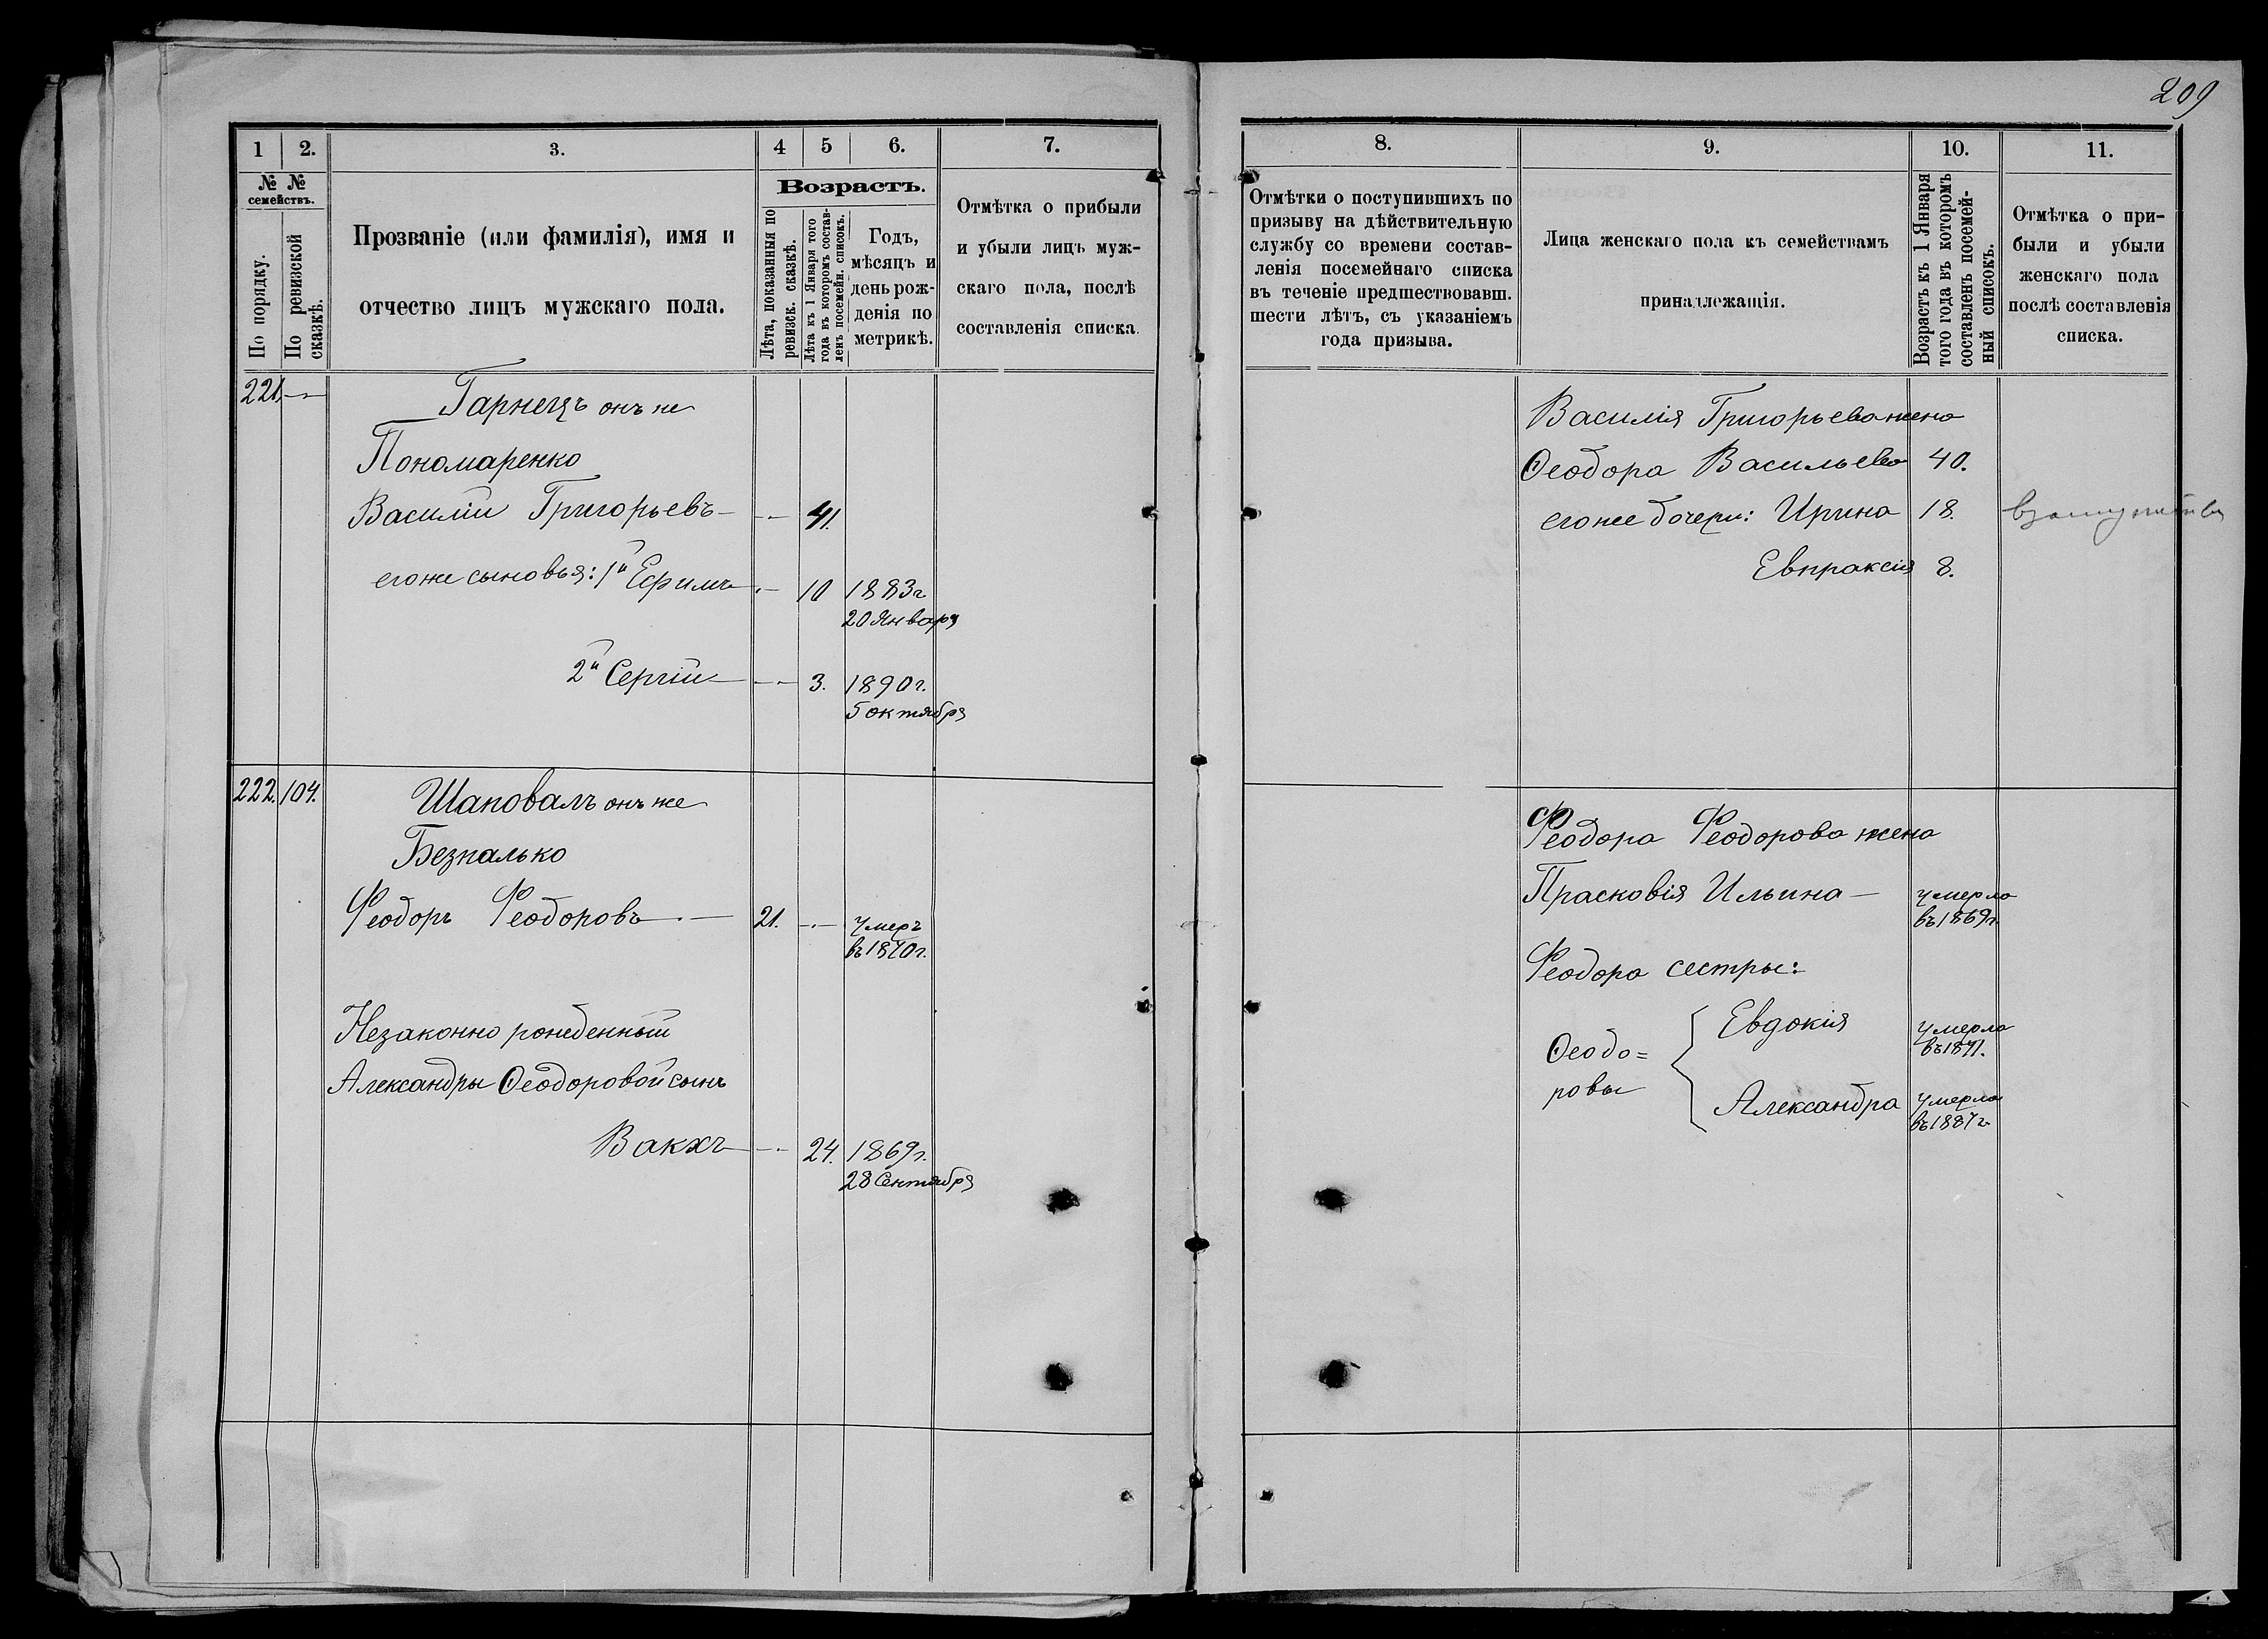 209
1
2.
3.
4
5
6.
7.
№ №
семействъ.
По порядку.
По ревизской
сказкѣ.
Прозваніе (или фамилія), имя и
отчество лицъ мужскаго пола.
Возрастъ.
Лѣта, показанныя по
ревизск. сказкѣ.
Лѣта къ 1 Января того
года въ которомъ состав-
ленъ посемейн. списокъ.
Годъ,
мѣсяцъ и
день рож-
денія по
метрикѣ.
Отмѣтка о прибыли
и убыли лицъ муж-
скаго пола, послѣ
составленія списка.
221. —
Гарнецъ онъ же
Пономаренко
Василій Григорьевъ — — 41.
егоже сыновья: 1й Ефимъ — 10 1883г
20 Января
2й Сергій — — 3. 1890г.
5 октября
222. 104.
Шаповалъ онъ же
Безпалько
Феодоръ Феодоровъ — 21. — умеръ
въ 1870г.
Незаконно рожденный
Александры Ѳеодоровой сынъ
Вакхъ — — 24. 1869г.
28 Сентября
8.
9.
10.
11.
Отмѣтки о поступившихъ по
призыву на дѣйствительную
службу со времени состав-
ленія посемейнаго списка
въ теченіе предшествовавш.
шести лѣтъ, съ указаніемъ
года призыва.
Лица женскаго пола къ семействамъ
принадлежащія.
Возрастъ къ 1 Января
того года въ которомъ
составленъ посемей-
ный списокъ.
Отмѣтка о при-
были и убыли
женскаго пола
послѣ составленія
списка.
Василія Григорьева жена
Ѳеодора Васильева 40.
егоже дочери: Ирина 18.
Евпраксія 8.
Феодора Феодорова жена
Прасковія Ильина — умерла
въ 1869г.
Феодора сестры:
Ѳеодо=
ровы
Евдокія умерла
въ 1871.
Александра умерла
въ 1887г